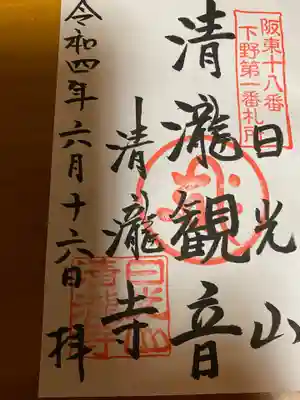 阪東十八番
下野第一番札所
日光山
清瀧観音
清瀧寺
令和四年六月十六日 拝